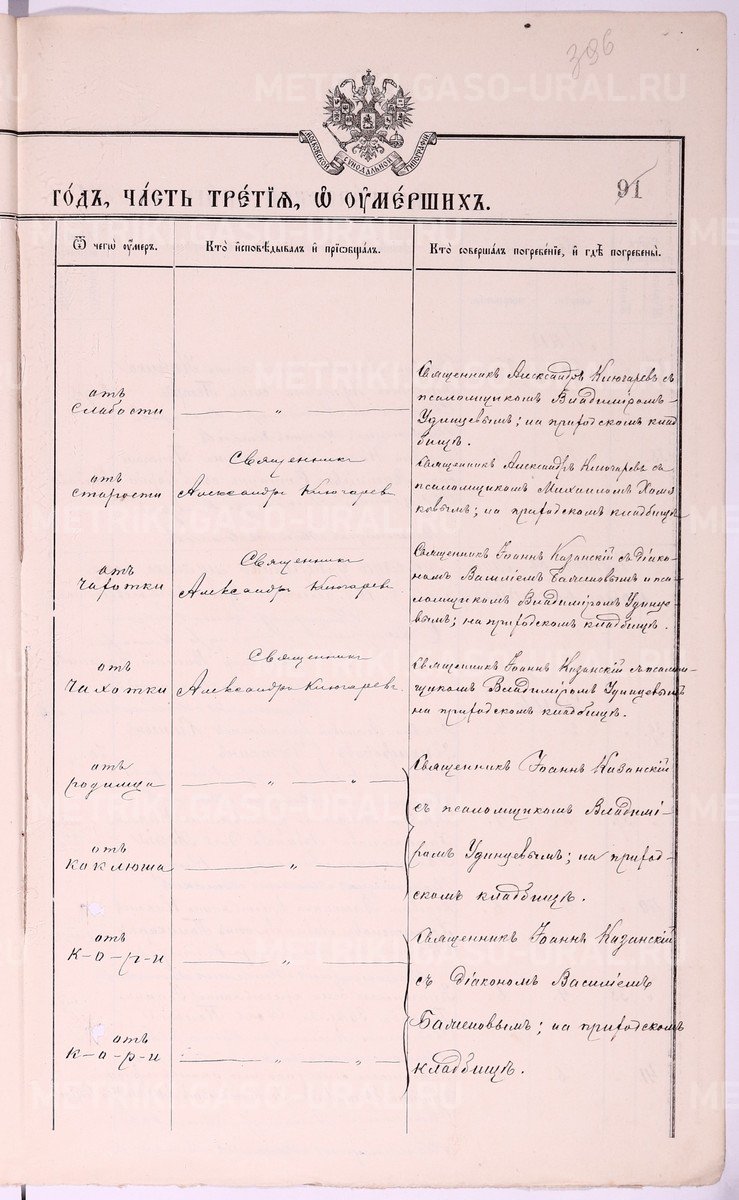 396
METRIKI.GASO-URAL.RU
МОСКОВСКОЙ СѴНОДАЛЬНОЙ ТИПОГРАФІИ
91
го́дъ, ча́сть тре́тїѧ, ѡ҆ ᲂу҆ме́ршихъ.
Ѿ чегѡ̀ ᲂу҆́меръ.
Кто̀ и҆сповѣ́дывалъ и҆ прїѡбща́лъ.
Кто̀ соверша́лъ погребе́нїе, и҆ гдѣ̀ погребены̀.
отъ
слабости
— „
Священникъ Александръ Ключаревъ съ
псаломщикомъ Владиміромъ
Удинцевымъ; на приходскомъ клад
бищѣ.
отъ
старости
Священникъ
Александръ Ключаревъ
Священникъ Александръ Ключаревъ съ
псаломщикомъ Михаиломъ Хомя
ковымъ; на приходскомъ кладбищѣ
отъ
чахотки
Священникъ
Александръ Ключаревъ
Священникъ Іоаннъ Казанскій съ діако-
номъ Василіемъ Баженовымъ и пса-
ломщикомъ Владиміромъ Удинце-
вымъ; на приходскомъ кладбищѣ.
отъ
чахотки
Священникъ
Александръ Ключаревъ
Священникъ Іоаннъ Казанскій съ псалом-
щикомъ Владиміромъ Удинцевымъ
на приходскомъ кладбищѣ.
отъ
родимца
— „ — „ —
отъ
коклюша
— „ —
Священникъ Іоаннъ Казанскій
съ псаломщикомъ Владимі-
ромъ Удинцевымъ; на приход-
скомъ кладбищѣ.
отъ
к-о-р-и
— „ —
отъ
к-о-р-и
— „ — „ —
Священникъ Іоаннъ Казанскій
съ діакономъ Василіемъ
Баженовымъ; на приходскомъ
кладбищѣ.